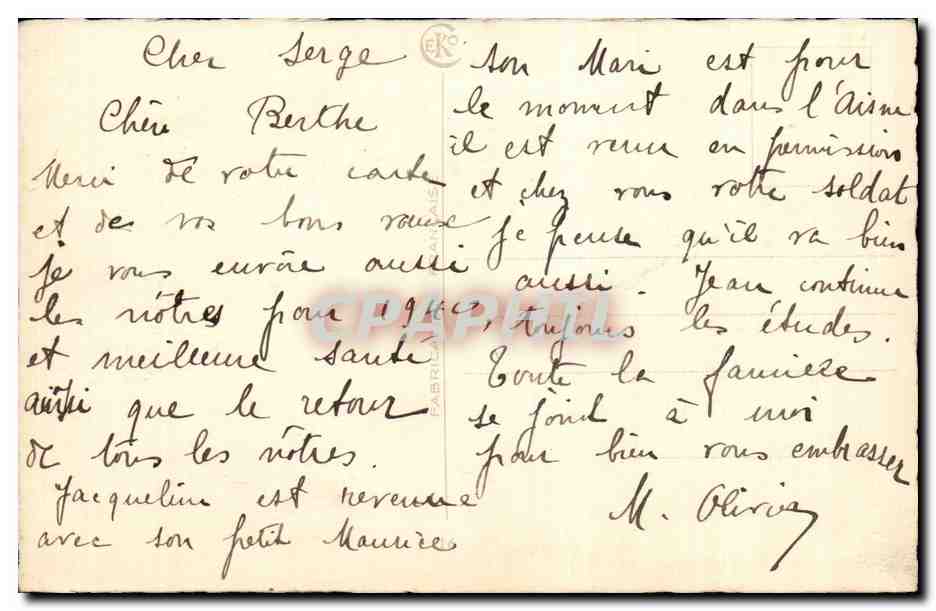 Cher Serge
Chère Berthe
Merci de votre carte
et des vos bons voeux
je vous envoie aussi
les nôtres pour 1940,
et meilleure santé
ainsi que le retour
de tous les nôtres.
Jacqueline est revenue
avec son petit Maurice
son Mari est pour
le moment dans l'Aisne
il est venu en permission
et chez vous votre soldat
je pense qu'il va bien
aussi. Jean continue
toujours les études.
Toute la famille
se joint à moi
pour bien vous embrasser
M. Olivier
EKC
FABRICATION FRANÇAISE
CPAPHIL